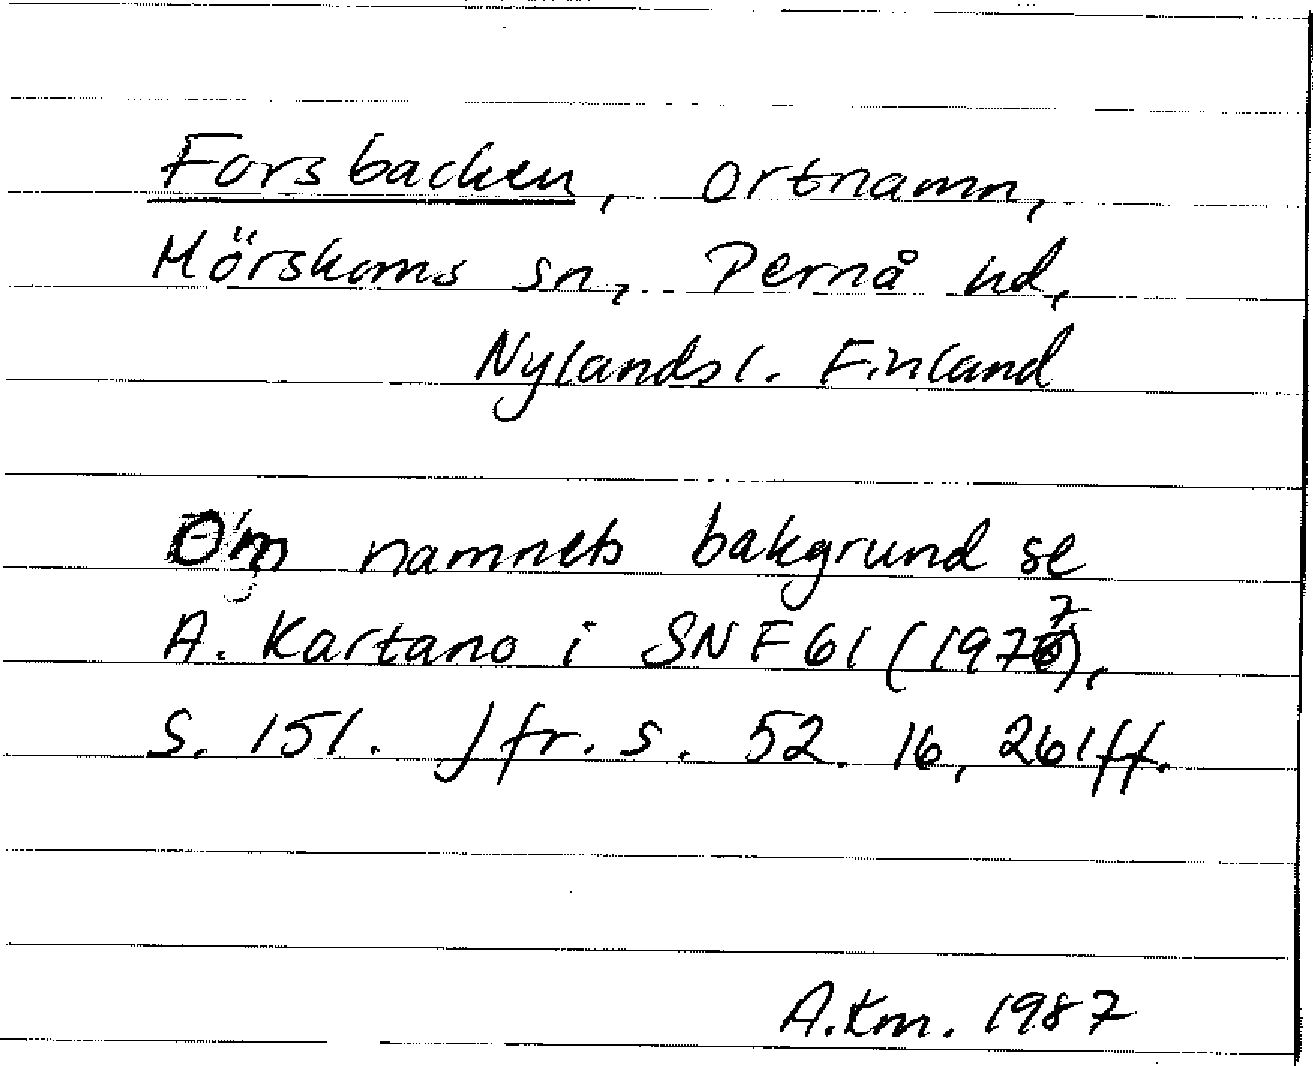 Forsbacken, ortnamn,
Mörskoms sn, Pernå hd,
Nylandsl. Finland
Om namnets bakgrund se
A. Kartano i SNF 61 (1977),
S. 151. Jfr. s. 52. 16, 261ff.
A.Km. 1987